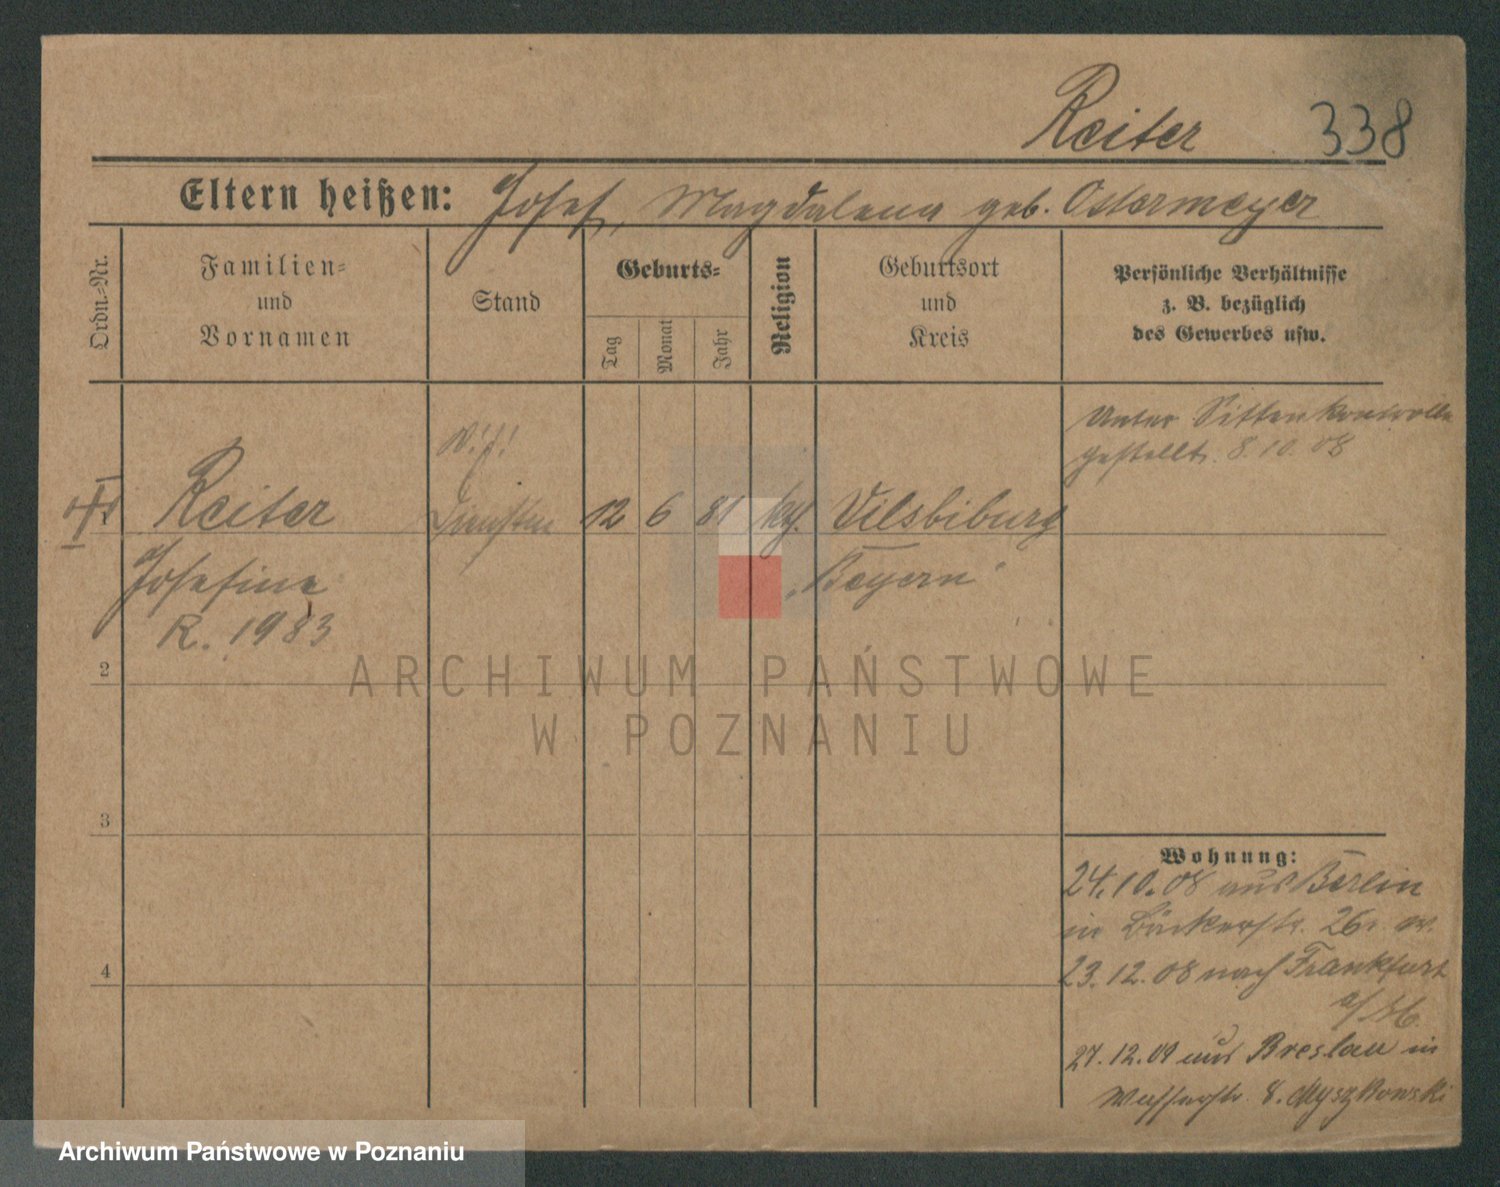 Reiter 338
Eltern heißen: Josef, Magdalena geb. Ostermeyer
Ordn.-Nr.
Familien-
und
Vornamen
Stand
Geburts-
Tag
Monat
Jahr
Religion
Geburtsort
und
Kreis
Persönliche Verhältnisse
z. B. bezüglich
des Gewerbes usw.
Unter Sittenkontrolle
gestellt. 8.10.08
1
Reiter
12 6 81 kth. Vilsbiburg
Josefine
Bayern
R. 1983
2
3
4
Wohnung:
24.10.08 aus Berlin
in Bäckerstr. 26
23.12.08 nach Frankfurt
a/M.
27.12.09 aus Breslau in
Wasserstr. 8. Myszkowski
ARCHIWUM PAŃSTWOWE
W POZNANIU
Archiwum Państwowe w Poznaniu